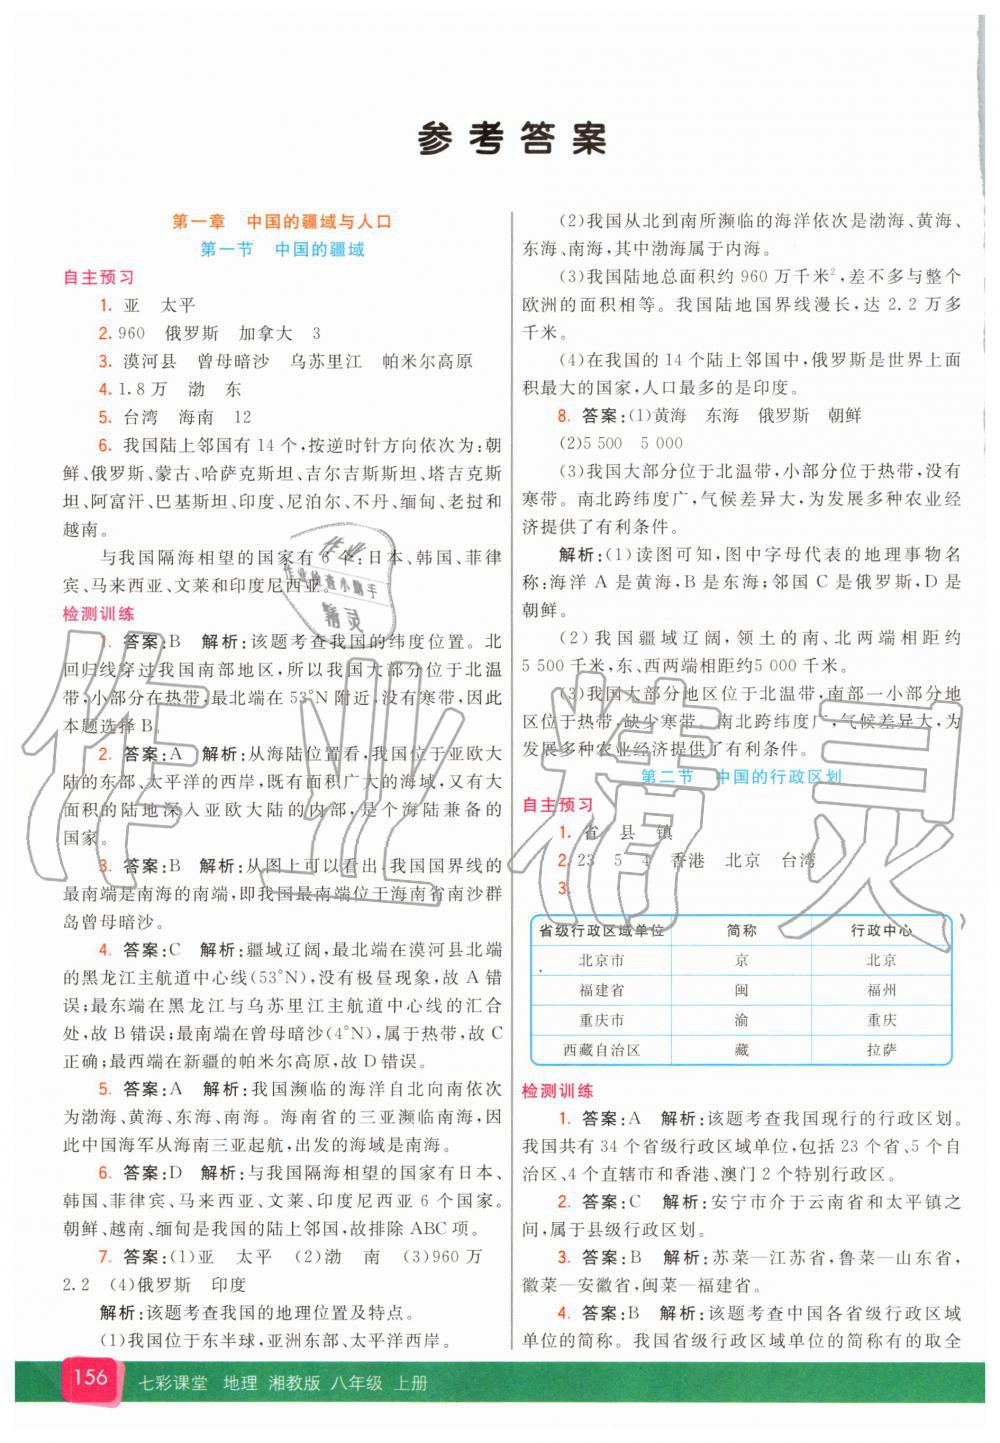 参考答案
第一章　中国的疆域与人口
第一节　中国的疆域
自主预习
1. 亚　太平
2. 960　俄罗斯　加拿大　3
3. 漠河县　曾母暗沙　乌苏里江　帕米尔高原
4. 1.8万　渤　东
5. 台湾　海南　12
6. 我国陆上邻国有14个,按逆时针方向依次为:朝
鲜、俄罗斯、蒙古、哈萨克斯坦、吉尔吉斯斯坦、塔吉克斯
坦、阿富汗、巴基斯坦、印度、尼泊尔、不丹、缅甸、老挝和
越南。
与我国隔海相望的国家有6个:日本、韩国、菲律
宾、马来西亚、文莱和印度尼西亚。
检测训练
1. 答案:B　解析:该题考查我国的纬度位置。北
回归线穿过我国南部地区,所以我国大部分位于北温
带,小部分在热带,最北端在53°N附近,没有寒带,因此
本题选择B。
2. 答案:A　解析:从海陆位置看,我国位于亚欧大
陆的东部、太平洋的西岸,既有面积广大的海域,又有大
面积的陆地深入亚欧大陆的内部,是个海陆兼备的
国家。
3. 答案:B　解析:从图上可以看出,我国国界线的
最南端是南海的南端,即我国最南端位于海南省南沙群
岛曾母暗沙。
4. 答案:C　解析:疆域辽阔,最北端在漠河县北端
的黑龙江主航道中心线(53°N),没有极昼现象,故A错
误;最东端在黑龙江与乌苏里江主航道中心线的汇合
处,故B错误;最南端在曾母暗沙(4°N),属于热带,故C
正确;最西端在新疆的帕米尔高原,故D错误。
5. 答案:A　解析:我国濒临的海洋自北向南依次
为渤海、黄海、东海、南海。海南省的三亚濒临南海,因
此中国海军从海南三亚起航,出发的海域是南海。
6. 答案:D　解析:与我国隔海相望的国家有日本、
韩国、菲律宾、马来西亚、文莱、印度尼西亚6个国家。
朝鲜、越南、缅甸是我国的陆上邻国,故排除ABC项。
7. 答案:(1)亚　太平　(2)渤　南　(3)960万
2.2　(4)俄罗斯　印度
解析:该题考查我国的地理位置及特点。
(1)我国位于东半球,亚洲东部、太平洋西岸。
(2)我国从北到南所濒临的海洋依次是渤海、黄海、
东海、南海,其中渤海属于内海。
(3)我国陆地总面积约960万千米²,差不多与整个
欧洲的面积相等。我国陆地国界线漫长,达2.2万多
千米。
(4)在我国的14个陆上邻国中,俄罗斯是世界上面
积最大的国家,人口最多的是印度。
8. 答案:(1)黄海　东海　俄罗斯　朝鲜
(2)5 500　5 000
(3)我国大部分位于北温带,小部分位于热带,没有
寒带。南北跨纬度广,气候差异大,为发展多种农业经
济提供了有利条件。
解析:(1)读图可知,图中字母代表的地理事物名
称:海洋A是黄海,B是东海;邻国C是俄罗斯,D是
朝鲜。
(2)我国疆域辽阔,领土的南、北两端相距约
5 500千米,东、西两端相距约5 000千米。
(3)我国大部分地区位于北温带,南部一小部分地
区位于热带,缺少寒带。南北跨纬度广,气候差异大,为
发展多种农业经济提供了有利条件。
第二节　中国的行政区划
自主预习
1. 省　县　镇
2. 23　5　4　香港　北京　台湾
3.
省级行政区域单位　简称　行政中心
北京市　京　北京
福建省　闽　福州
重庆市　渝　重庆
西藏自治区　藏　拉萨
检测训练
1. 答案:A　解析:该题考查我国现行的行政区划。
我国共有34个省级行政区域单位,包括23个省、5个自
治区、4个直辖市和香港、澳门2个特别行政区。
2. 答案:C　解析:安宁市介于云南省和太平镇之
间,属于县级行政区划。
3. 答案:B　解析:苏菜—江苏省,鲁菜—山东省,
徽菜—安徽省,闽菜—福建省。
4. 答案:B　解析:该题考查中国各省级行政区域
单位的简称。我国省级行政区域单位的简称有的取全
作业
作业检查小助手
精灵
作业精灵
156　七彩课堂　地理　湘教版　八年级　上册